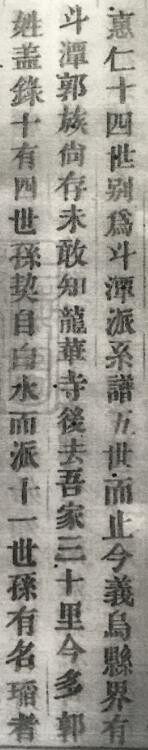 惪仁十四世别為斗潭派系譜五世而止今義烏縣界有
斗潭郭族尙存未敢知龍華寺後去吾家三十里今多郭
姓盖錄十有四世孫契自白水而派十一世孫有名瑠者